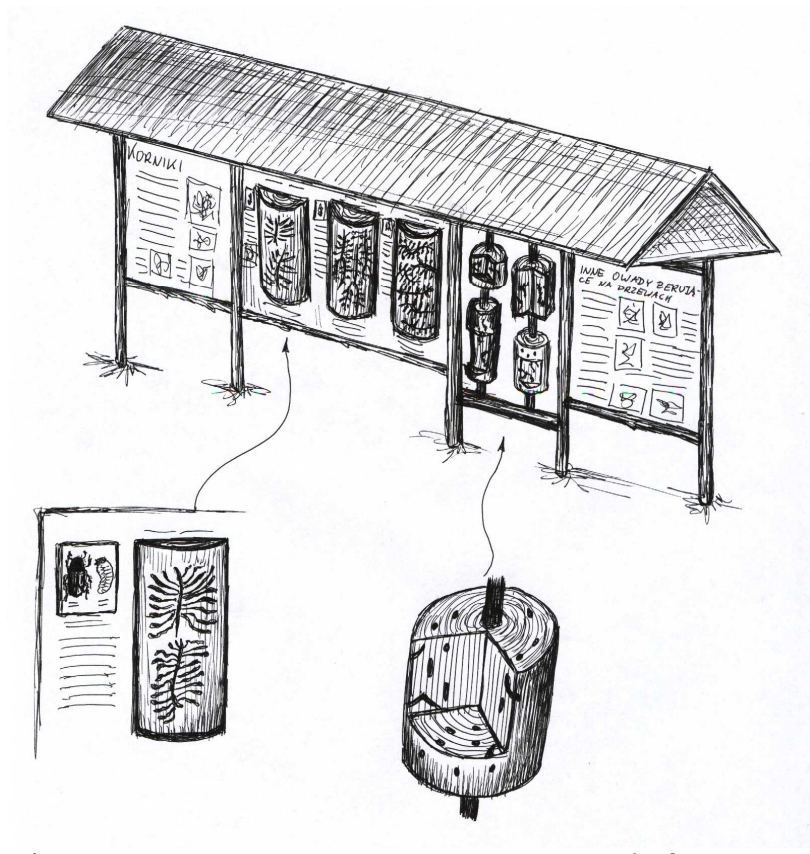 KORNIKI
INNE OWADY ŻERUJĄ-
CE NA DRZEWACH